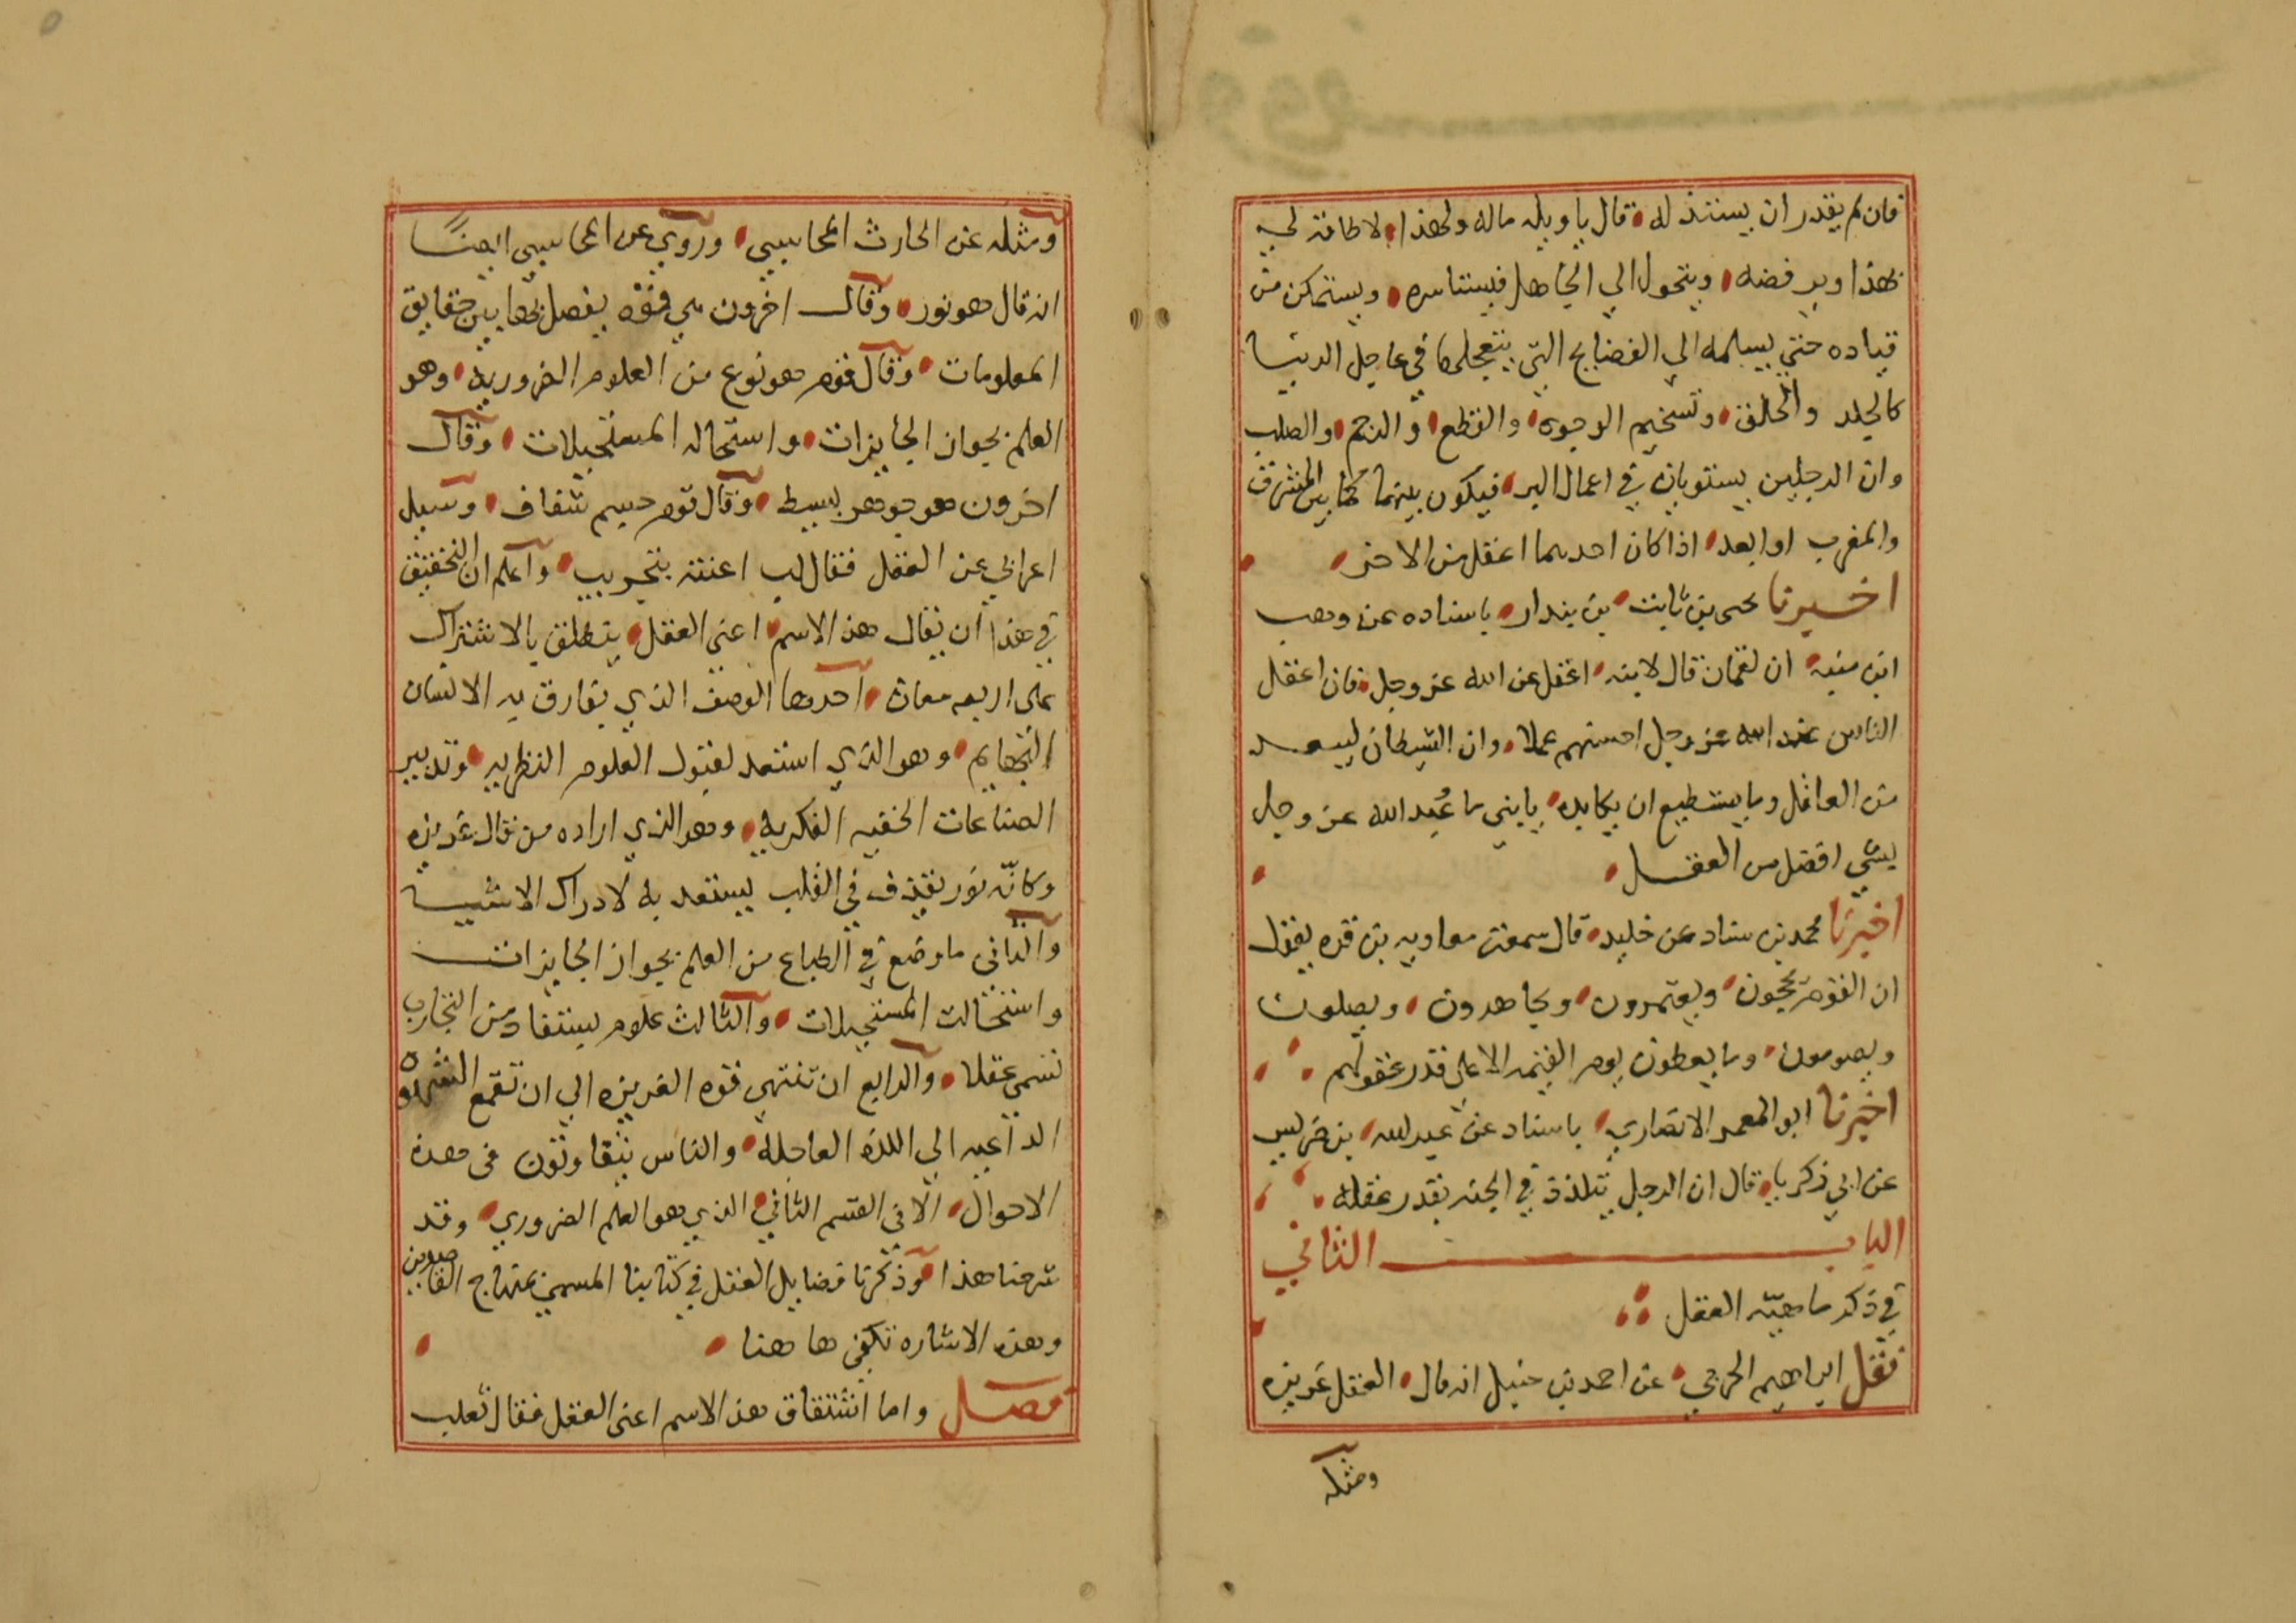 فان لم يقدر ان يستنذله قال ياويله ماله ولهذا لا طاقة لي
بهذا ويرفضه ويتحول الي الجاهل فيستاسره ويستمكن من
قياده حتي يسلمه الي الفضايح التي يتعجلها في عاجل الدنيا
كالجلد والحلق وتسخيم الوجوه والقطع والرجم والصلب
وان الرجلين يستويان في اعمال البر فيكون بينهما كما بين المشرق
والمغرب او ابعد اذا كان احدهما اعقل من الاخر
اخبرنا يحيى بن ثابت بن بندار باسناده عن وهب
ابن منبه ان لقمان قال لابنه اعقل عن الله عز وجل فان اعقل
الناس عند الله عز وجل احسنهم عملا وان الشيطان ليبعد
من العاقل وما يستطيع ان يكابده يابني ما عُبد الله عز وجل
بشي افضل من العقل
اخبرنا محمد بن سناد عن خليد قال سمعت معاويه بن قره يقول
ان القوم يحجون ويعتمرون ويجاهدون ويصلون
ويصومون وما يعطون يوم القيمه الا علي قدر عقولهم
اخبرنا ابو المعمر الانصاري باسناد عن عبد لله بن ضريس
عن ابي زكريا قال ان الرجل يتلذذ في الجنه بقدر عقله
الباب الثاني
في ذكر ماهيّه العقل
نقل ابراهيم الحربي عن احمد بن حنبل انه قال العقل غريزه
ومثله
ومثله عن الحارث المحاسبي وروي عن المحاسبي ايضًا
انه قال هو نور وقال اخرون هي قوّه يفصل بها بين حقايق
المعلومات وقال قوم هو نوع من العلوم الضروريه وهو
العلم بجواز الجايزات واستحاله المستحيلات وقال
اخرون هو جوهر بسيط وقال قوم جسم شفاف وسيل
اعرابي عن العقل فقال لب اعنته بتجريب واعلم ان التحقيق
في هذا ان يقال هذا الاسم اعني العقل يتطلق بالاشتراك
علي اربعه معان احدها الوصف الذي يفارق به الانسان
البهايم وهو الذي استعد لقبول العلوم النظريه وتدبير
الصناعات الخفيه الفكريه وهو الذي اراده من قال غريزه
وكانّه نور يقذف في القلب يستعد به لادراك الاشيا
والثاني ما وضع في الطباع من العلم بجواز الجايزات
واستحالت المستحيلات والثالث علوم يستفاد من التجارب
تسمى عقلا والرابع ان تنتهي قوه الغريزه الي ان تقمع الشهوه
الداعيه الي اللذه العاجله والناس يتفاوتون في هذه
الاحوال الا في القسم الثاني الذي هو العلم الضروري وقد
شرحنا هذا وذكرنا فضايل العقل في كتابنا المسمي بمنهاج القاصدين
وهذه الاشاره تكفي ها هنا
فصل واما اشتقاق هذا الاسم اعنى العقل فقال ثعلب